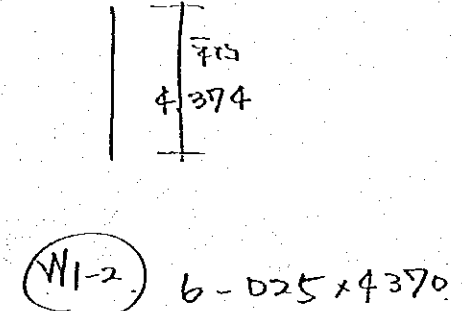 平均
4,374
W1-2 6-D25×4370